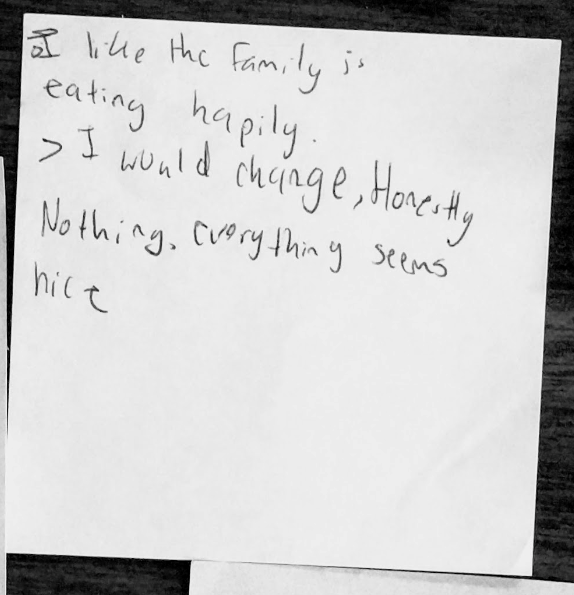 I like the Family is
eating hapily.
> I would change, Honestly
Nothing. everything seems
nice